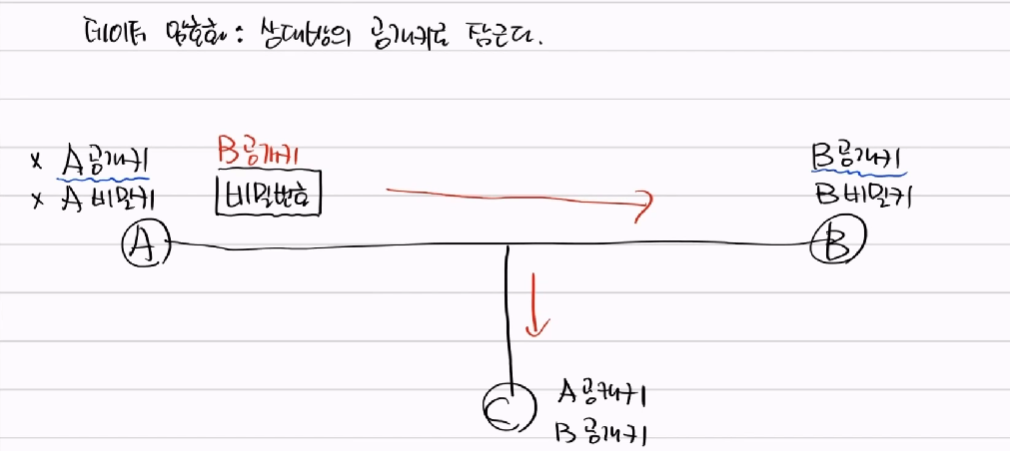 데이터 암호화 : 상대방의 공개키로 잠근다.
x A공개키
x A 비밀키
B공개키
비밀번호
B공개키
B비밀키
A
B
C
A공개키
B공개키